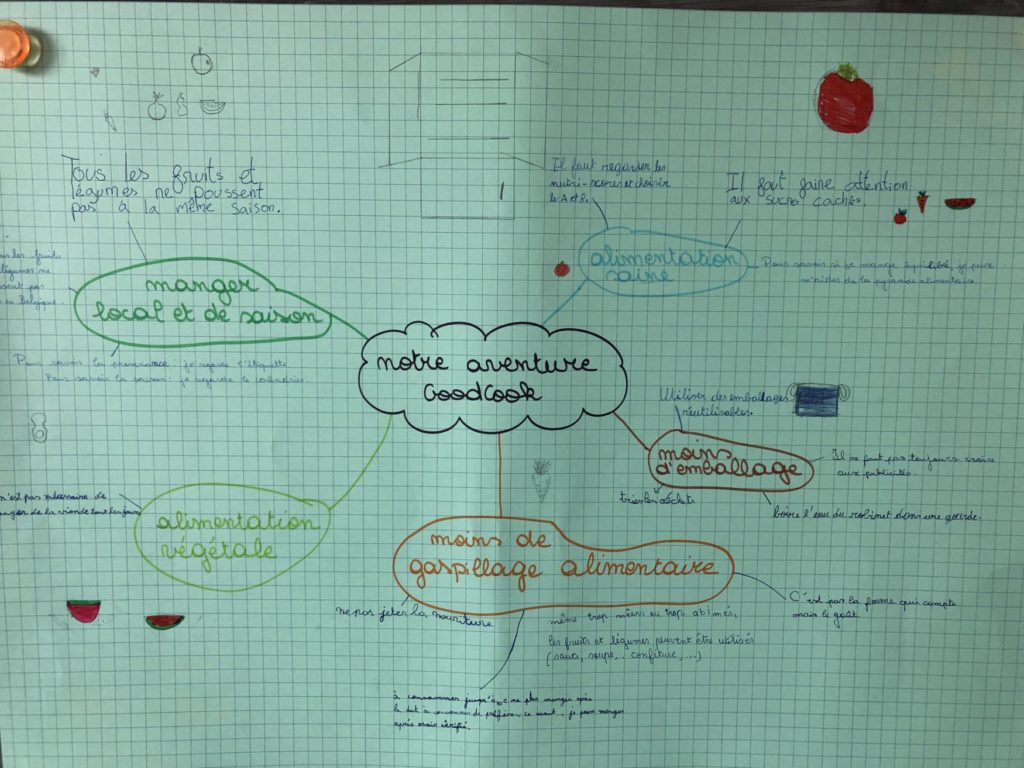 Tous les fruits et
légumes ne poussent
pas à la même saison.
les fruits
légumes ne
pas
Belgique.
manger
local et de saison
Pour savoir la provenance : je regarde l'étiquette
Pour savoir la saison : je regarde le calendrier.
Il faut regarder les
nutri-scores et choisir
le A et B.
Il faut faire attention
aux sucres cachés.
alimentation
saine
Pour savoir si je mange équilibré, je peux
m'aider de la pyramide alimentaire.
notre aventure
GoodCook
Utiliser des emballages
réutilisables.
moins
d'emballage
Il ne faut pas toujours croire
aux publicités.
trier les déchets
boire l'eau du robinet dans une gourde.
n'est pas nécessaire de
manger de la viande tout les jours
alimentation
végétale
moins de
gaspillage alimentaire
ne pas jeter la nourriture
même trop mûers ou trop abîmés,
les fruits et légumes peuvent être utilisés
(sauce, soupe, confiture, ...)
C'est pas la forme qui compte
mais le goût.
à consommer jusqu'au = ne plus manger après
la date à consommer de préférence avant... je peux manger
après avoir vérifié.